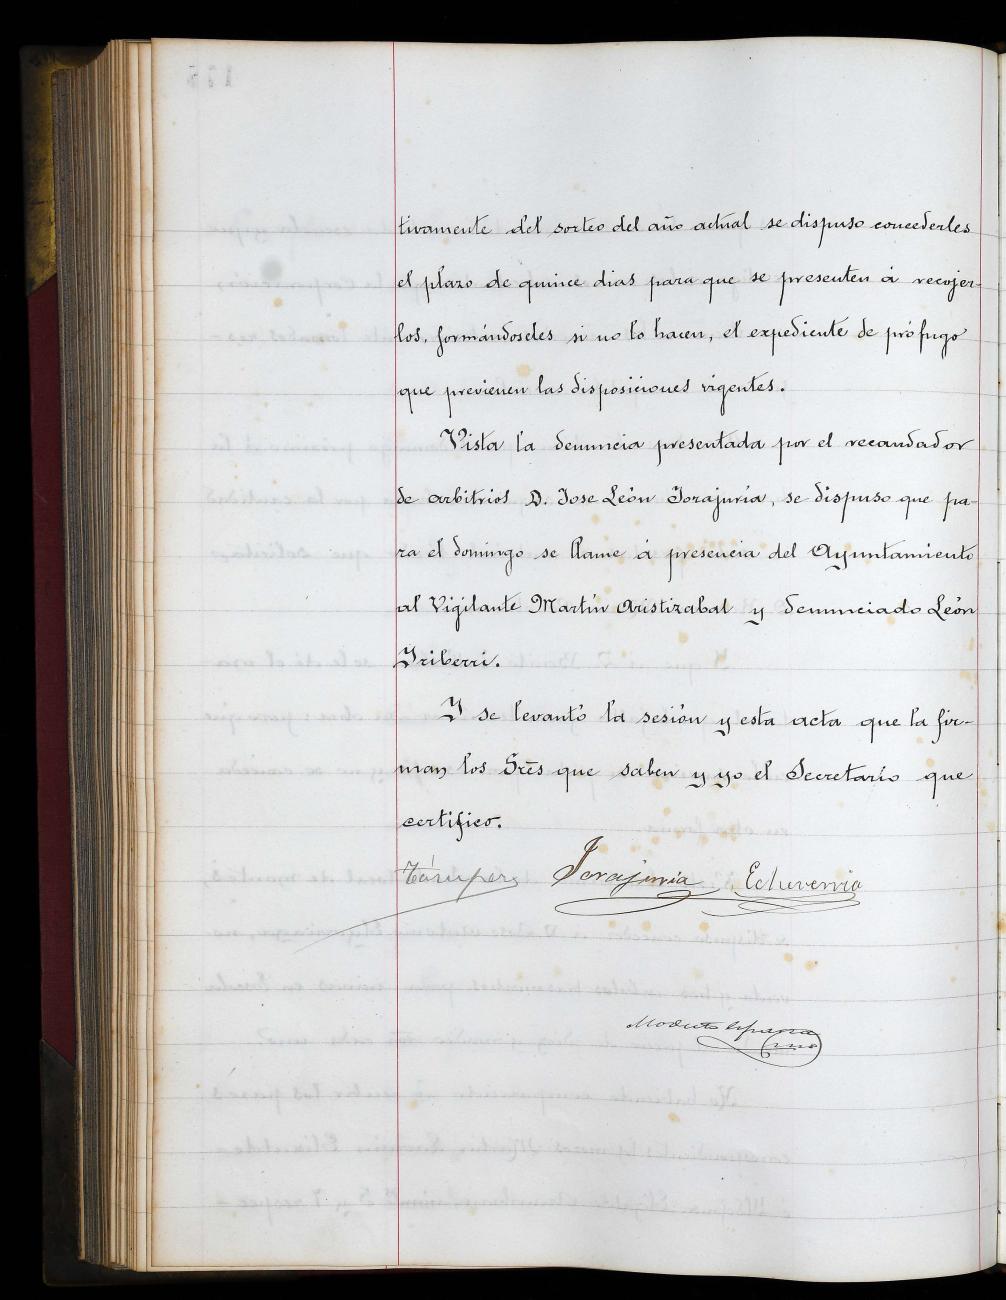 tivamente del sorteo del año actual se dispuso concederles
el plazo de quince dias para que se presenten á recojer-
los, formándoseles si no lo hacen, el expediente de prófugo
que previenen las disposiciones vigentes.
Vista la denuncia presentada por el recaudador
de arbitrios D. Jose León Jorajuría, se dispuso que pa-
ra el domingo se llame á presencia del Ayuntamiento
al Vigilante Martín Aristizabal y denunciado León
Iriberri.
Y se levantó la sesión y esta acta que la fir-
man los Sres que saben y yo el Secretario que
certifico.
Jorajuria Echeverria
Modesto